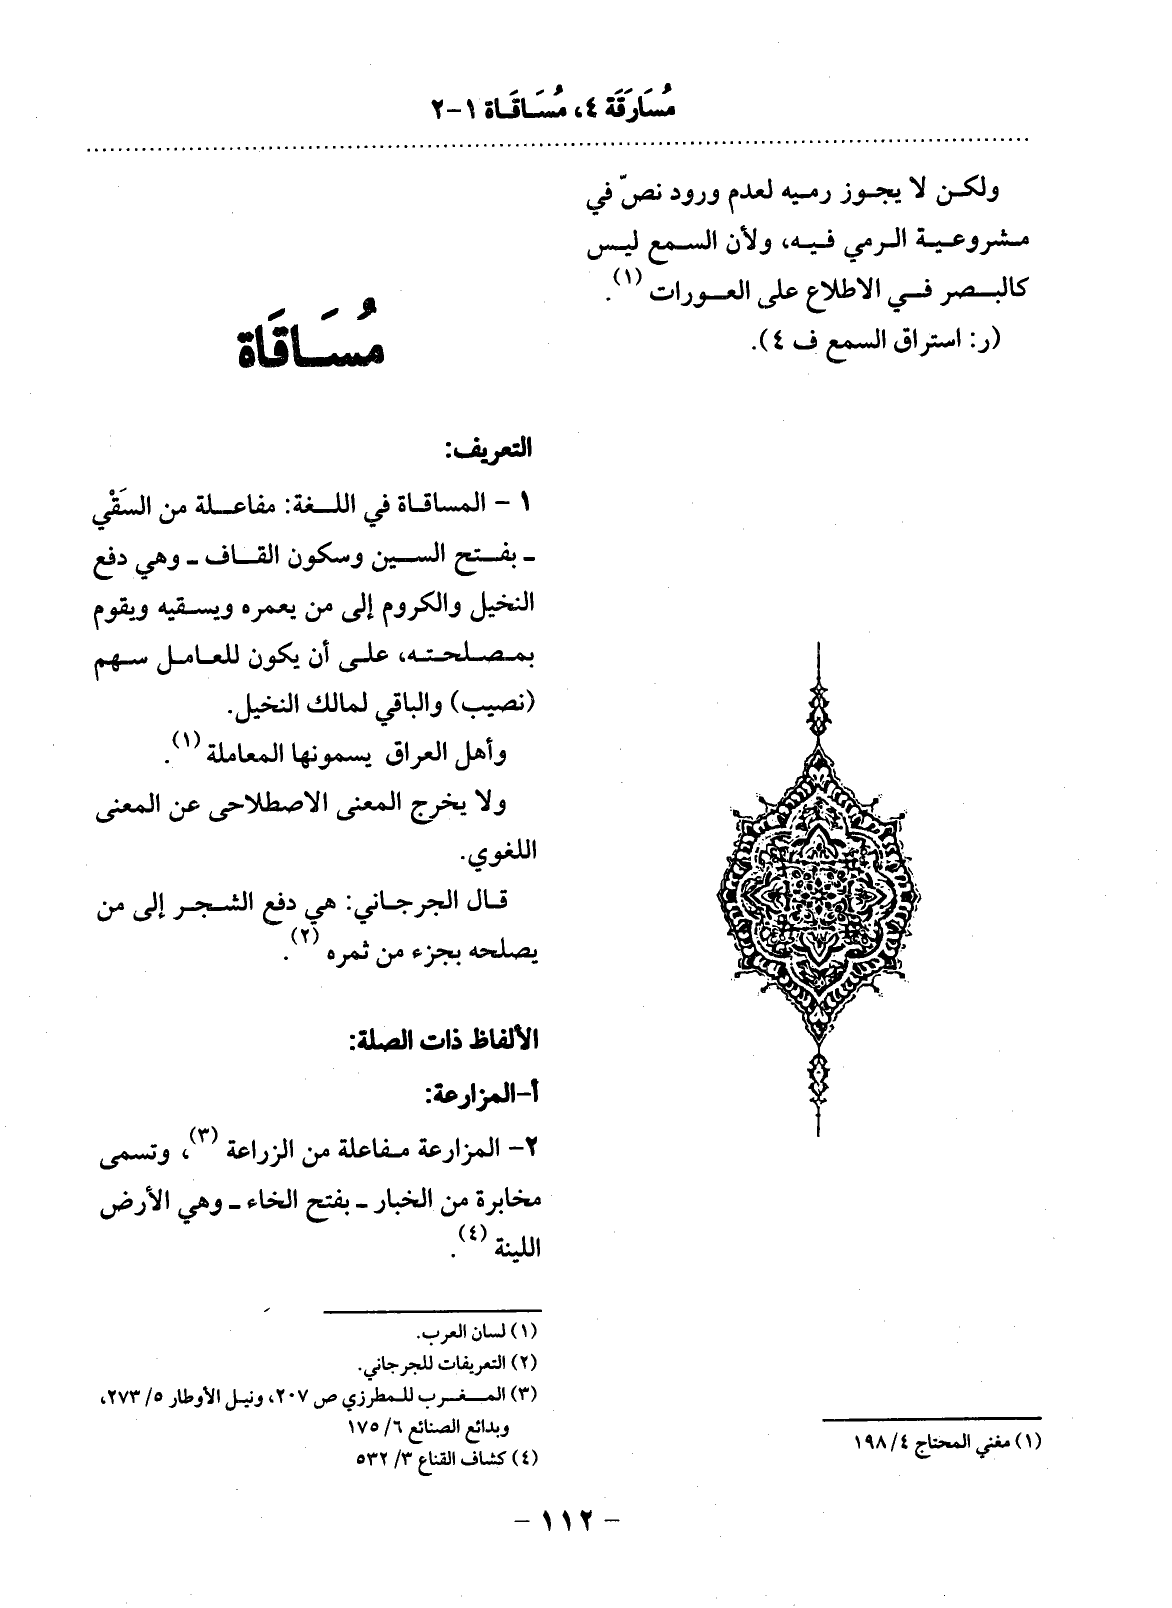 مُسَارَقَة ٤، مُسَاقَاة ١-٢
ولكن لا يجوز رميه لعدم ورود نصّ في
مشروعية الرمي فيه، ولأن السمع ليس
كالبصر في الاطلاع على العورات (١).
(ر: استراق السمع ف ٤).
(١) مغني المحتاج ٤/ ١٩٨
مُسَاقَاة
التعريف:
١ - المساقاة في اللغة: مفاعلة من السَقْي
ـ بفتح السين وسكون القاف ـ وهي دفع
النخيل والكروم إلى من يعمره ويسقيه ويقوم
بمصلحته، على أن يكون للعامل سهم
(نصيب) والباقي لمالك النخيل.
وأهل العراق يسمونها المعاملة (١).
ولا يخرج المعنى الاصطلاحى عن المعنى
اللغوي.
قال الجرجاني: هي دفع الشجر إلى من
يصلحه بجزء من ثمره (٢).
الألفاظ ذات الصلة:
أ-المزارعة:
٢- المزارعة مفاعلة من الزراعة (٣)، وتسمى
مخابرة من الخبار ـ بفتح الخاء ـ وهي الأرض
اللينة (٤).
(١) لسان العرب.
(٢) التعريفات للجرجاني.
(٣) المغرب للمطرزي ص ٢٠٧، ونيل الأوطار ٥/ ٢٧٣،
وبدائع الصنائع ٦/ ١٧٥
(٤) كشاف القناع ٣/ ٥٣٢
- ١١٢ -